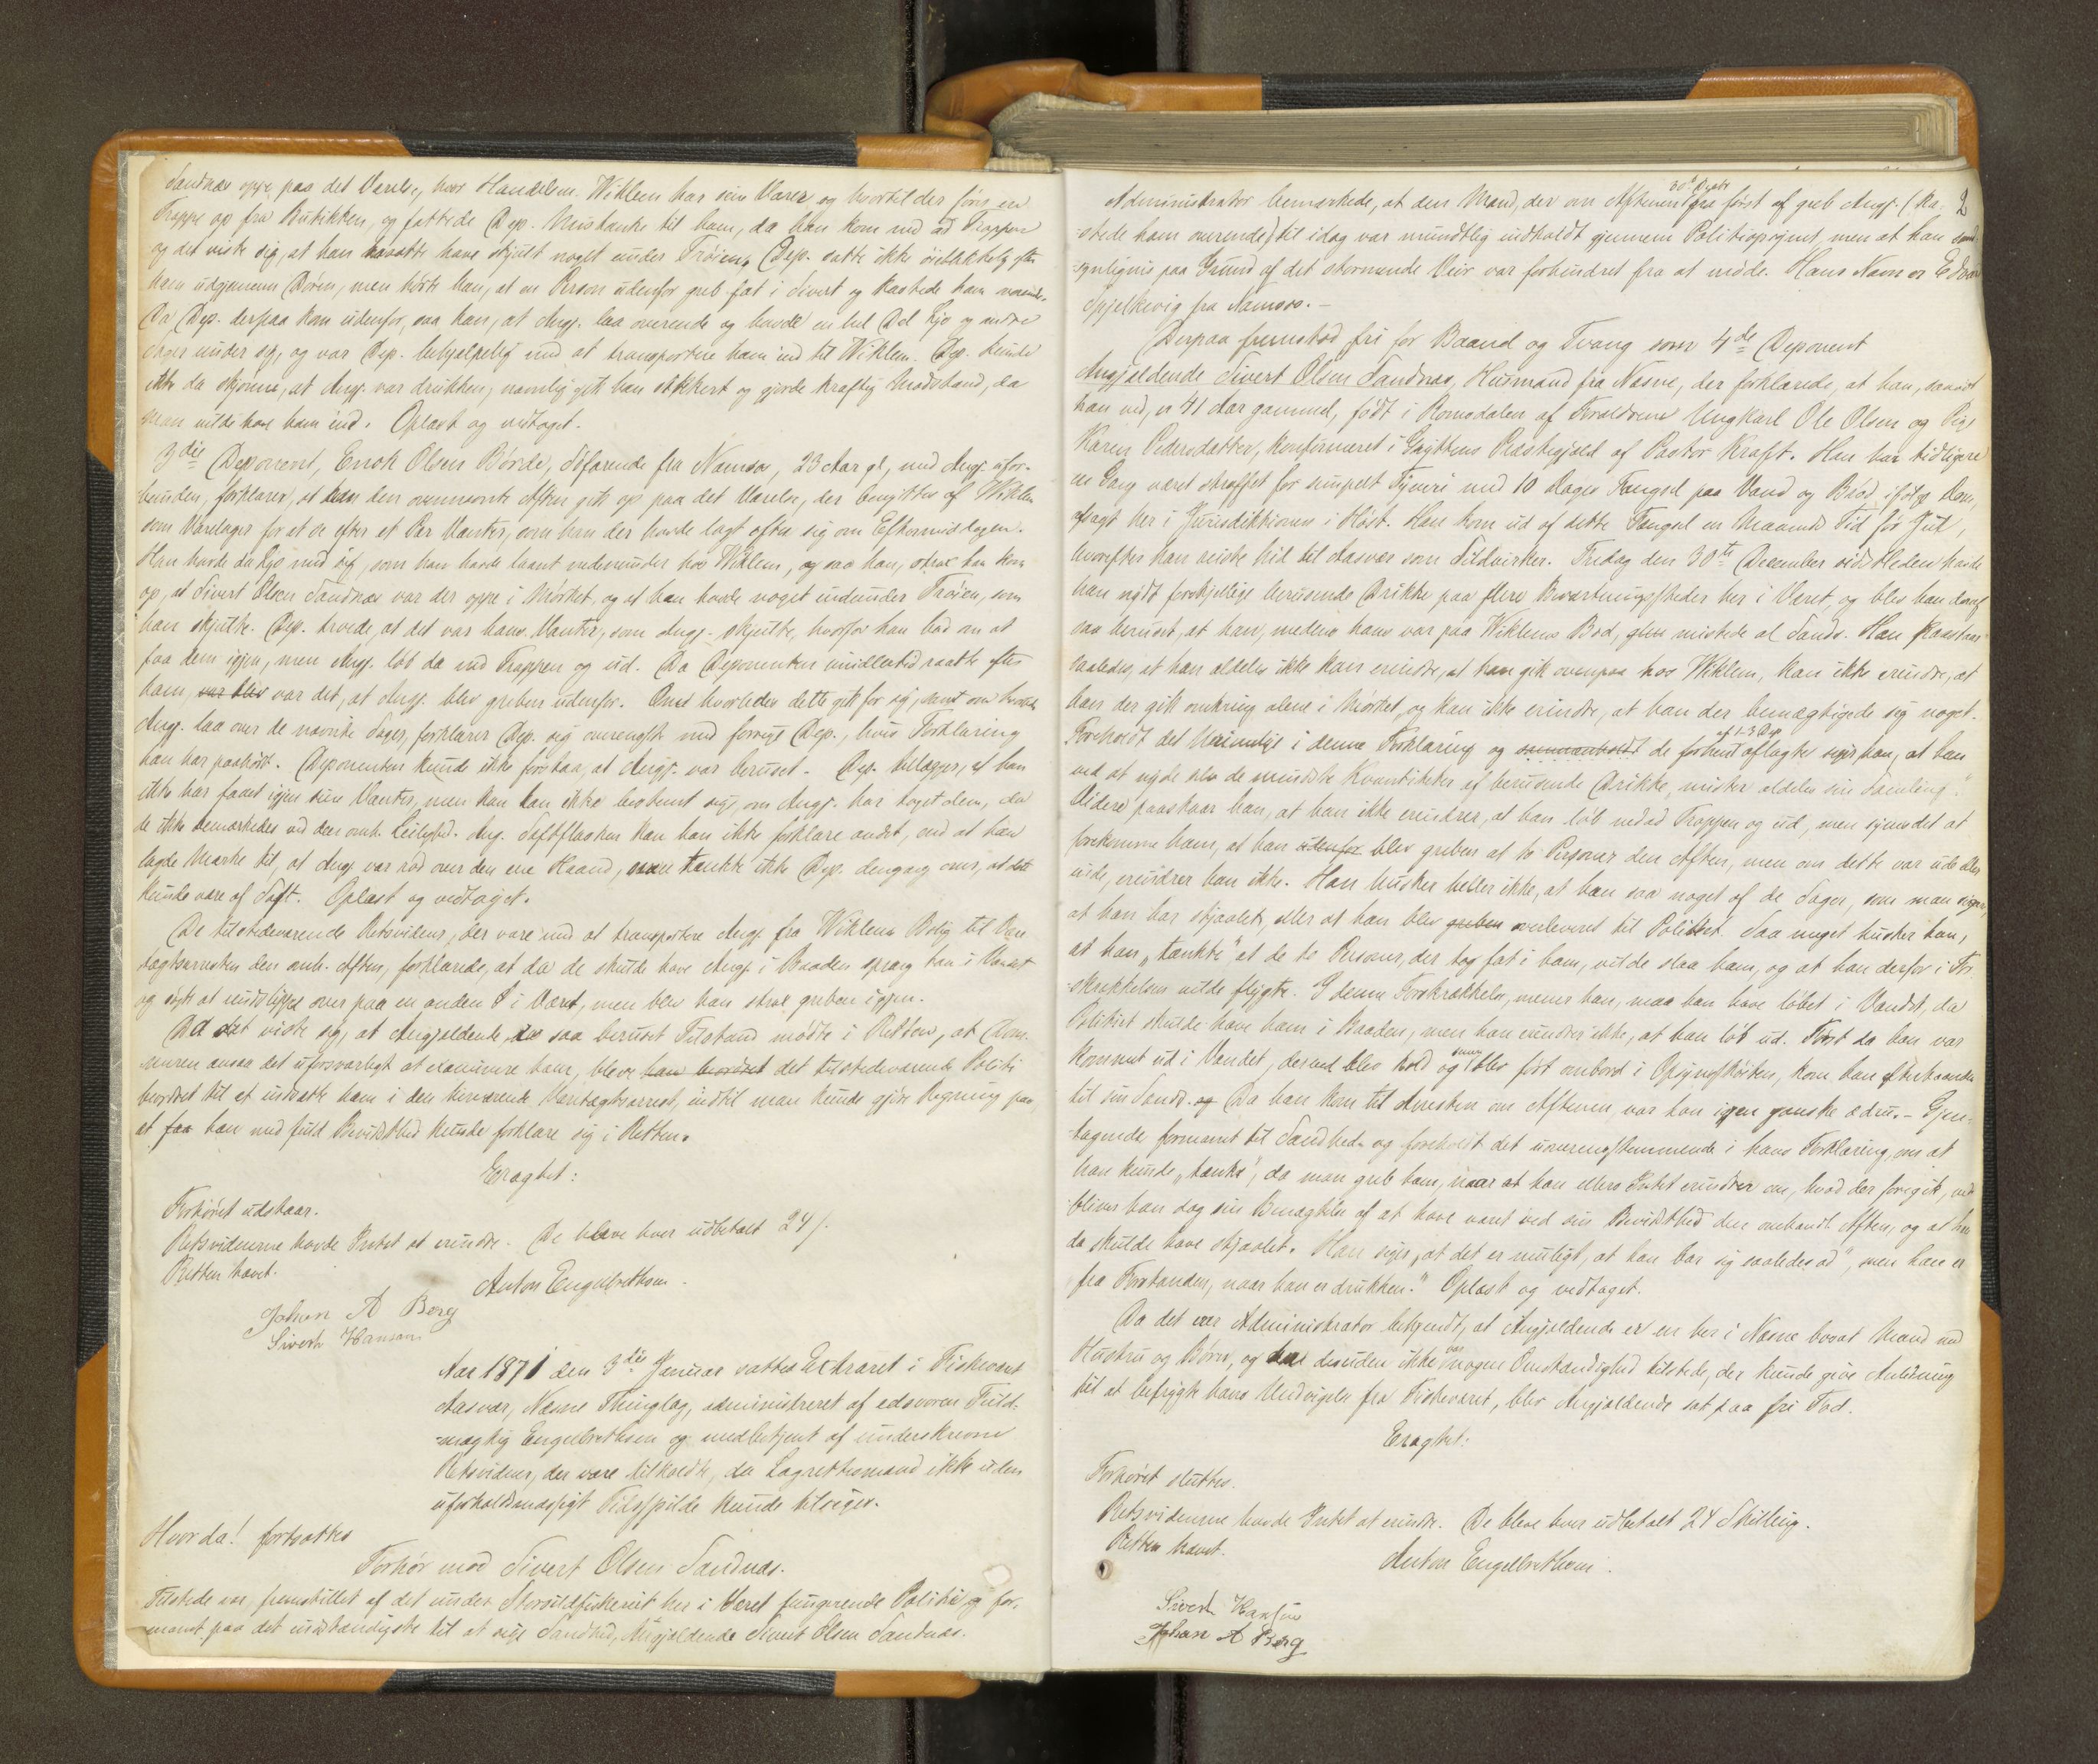 Sandnæs oppe paa det Værelse, hvor Handelsm. Wiklem har sine Varer og hvortil der føris en
Trappe op fra Butikken, og fattede Dep. Mistanke til ham, da han kom ned ad Trappen
og det viste sig, at han maatte have skjult noget under Trøien. Dep. satte ikke øieblikkelig efter
ham udgjennem Døren, men hørte han, at en Person udenfor greb fat i Sivert og kastede ham overende.
Da Dep. derpaa kom udenfor, saa han, at Angj. laa overende og havde en hel Del Lys og andre
Sager under sig, og var Dep. behjælpelig med at transportere ham ind til Wiklem. Dep. kunde
ikke da skjønne, at Angj. var drukken, navnlig gik han sikkert og gjorde kraftig Modstand, da
man vilde have ham ind. Oplæst og vedtaget.
3die Deponent, Enok Olsen Børde, Søfarende fra Namsos, 23 Aar gl, med Angj. ufor-
bunden, forklarer, at han den ovennævnte Aften gik op paa det Værelse, der benyttes af Wiklem
som Varelager for at se efter et Par Vanter, som han der havde lagt efter sig om Eftermiddagen.
Han havde da Lys med sig, som han havde laant nedenunder hos Wiklem, og saa han, strax han kom
op, at Sivert Olsen Sandnæs var der oppe i Mørket, og at han havde noget indunder Trøien, som
han skjulte. Dep. troede, at det var hans Vanter, som Angj. skjulte, hvorfor han bad om at
faa dem igjen, men Angj. løb da ned Trappen og ud. Da Deponenten imidlertid raabte efter
ham, var blev var det, at Angj. blev greben udenfor. Om hvorledes dette gik for sig, samt om hvorledes
Angj. laa over de nævnte Sager, forklarer Dep. sig overensst. med forrige Dep., hvis Forklaring
han har paahørt. Deponenten kunde ikke forstaa, at Angj. var beruset. Dep. tillægger, at han
ikke har faaet igjen sine Vanter, men kan han ikke bestemt sige, om Angj. har taget dem, da
de ikke bemærkedes ved den omh. Leilighed. Ang. Saftflasken kan han ikke forklare andet, end at han
lagde Mærke til, at Angj. var rød over den ene Haand, men tænkte ikke Dep. dengang over, at dette
kunde være af Saft. Oplæst og vedtaget.
De tilstedeværende Retsvidner, der vare med at transportere Angj. fra Wiklems Bolig til Vare-
tægtsarresten den omh. Aften, forklarede, at da de skulde have Angj. i Baaden sprang han i Vandet
og søgte at undslippe over paa en anden Ø i Været, men blev han strax greben igjen.
Da det viste sig, at Angjældende i saa beruset Tilstand mødte i Retten, at Dom-
meren ansaa det uforsvarligt at examinere ham, bleve han beordret det tilstedeværende Politi
beordret til at indsætte ham i den herværende Varetægtsarrest, indtil man kunde gjøre Regning paa,
at faa han med fuld Bevidsthed kunde forklare sig i Retten.
Eragtet:
Forhøret udstaar.
Retsvidnerne havde Intet at erindre. De bleve hver udbetalt 24 /.
Retten hævet.
Anton Engelbrethsen.
Johan A Berg
Sivert Hansen
Aar 1871 den 3die Januar sattes Extraret i Fiskeværet
Aasvær, Næsne Thinglag, administreret af edsvoren Fuld-
mægtig Engelbrethsen og medbetjent af underskrevne
Retsvidner, der vare tilkaldte, da Lagrettesmænd ikke uden
uforholdsmæssigt Tidsspilde kunde tilsiges.
Hvor da! fortsattes
Forhør mod Sivert Olsen Sandnæs.
Tilstede var, fremstillet af det under Storsildfiskeriet her i Været fungerende Politi og for-
manet paa det indstændigste til at sige Sandhed, Angjældende Sivert Olsen Sandnæs.
2
30te Decbr
Administrator bemærkede, at den Mand, der om Aftenen fra først af greb Angj. (ka-
stede ham overende) til idag var mundtlig indkaldt gjennem Politiopsynet, men at han sand-
synligvis paa Grund af det stormende Veir var forhindret fra at møde. Hans Navn er Edvard
Spjelkevig fra Namsos.-
Derpaa fremstod fri for Baand og Tvang som 4de Deponent
Angjældende Sivert Olsen Sandnæs, Husmand fra Næsne, der forklarede, at han, saavidt
han ved, er 41 Aar gammel, født i Romsdalen af Forældrene Ungkarl Ole Olsen og Pige
Karen Pedersdatter, konfirmeret i Præstegjæld af Pastor Kraft. Han har tidligere
en Gang været straffet for simpelt Tyveri med 10 Dages Fængsel paa Vand og Brød ifølge Dom,
afsagt her i Jurisdiktionen i Høst. Han kom ud af dette Fængsel en Maaneds Tid før Jul,
hvorefter han reiste hid til Aasvær som Sildvirker. Fredag den 30te December sidstleden havde
han nydt forskjellige berusende Drikke paa flere Beværtningssteder her i Været, og blev han deraf
saa beruset, at han, medens han var paa Wiklems Bod, mistede al Sands. Han paastaar
saaledes, at han aldeles ikke kan erindre, at han gik ovenpaa hos Wiklem, kan ikke erindre, at
han der gik omkring alene i Mørket, og kan ikke erindre, at han der bemægtigede sig noget.
af 1-3 Dep
Foreholdt det Urimelige i denne Forklaring og sammenholdt de forhen aflagte siger han, at han
ved at nyde selv de mindste Kvantiteter af berusende Drikke, mister aldeles sin Samling."
Videre paastaar han, at han ikke erindrer, at han løb nedad Trappen og ud, men synes det at
forekomme ham, at han udenfor blev greben af to Personer den Aften, men om dette var ude eller
inde, erindrer han ikke. Han husker heller ikke, at han saa noget af de Sager, som man siger,
at han har stjaalet, eller at han blev greben overleveret til Politiet. Saa meget husker han,
at han „tænkte" at de to Personer, der tog fat i ham, vilde slaa ham, og at han derfor i For-
skrækkelsen vilde flygte. I denne Forskrækkelse, mener han, maa han have løbet i Vandet, da
Politiet skulde have ham i Baaden, men han erindrer ikke, at han løb ud. Først da han var
kommet ud i Vandet, derved blev kold og blev ført ombord i Opsynsskøiten, kom han efterhaanden
til sin Sands. og Da han kom til Arresten om Aftenen, var han igjen ganske ædru.- Gjen-
tagende formanet til Sandhed og foreholdt det uoverensstemmende i hans Forklaring, om at
han kunde „tænke", da man greb ham, naar at han ellers Intet erindrer om, hvad der foregik, ved-
bliver han dog sin Benægtelse af at have været ved sin Bevidsthed den omhandl. Aften, og at han
da skulde have stjaalet. Han siger, „at det er muligt, at han bar sig saaledes ad", men han er
fra Forstanden, naar han er drukken." Oplæst og vedtaget.
Da det var Administrator bekjendt, at Angjældende er en her i Næsne bosat Mand med
Hustru og Børn, og der desuden ikke var nogen Omstændighed tilstede, der kunde give Anledning
til at befrygte hans Undvigelse fra Fiskeværet, blev Angjældende sat paa fri Fod.
Eragtet:
Forhøret sluttes.
Retsvidnerne havde Intet at erindre. De bleve hver udbetalt 24 Skilling.
Retten hævet.
Anton Engelbrethsen.
Sivert Hansen
Johan A Berg